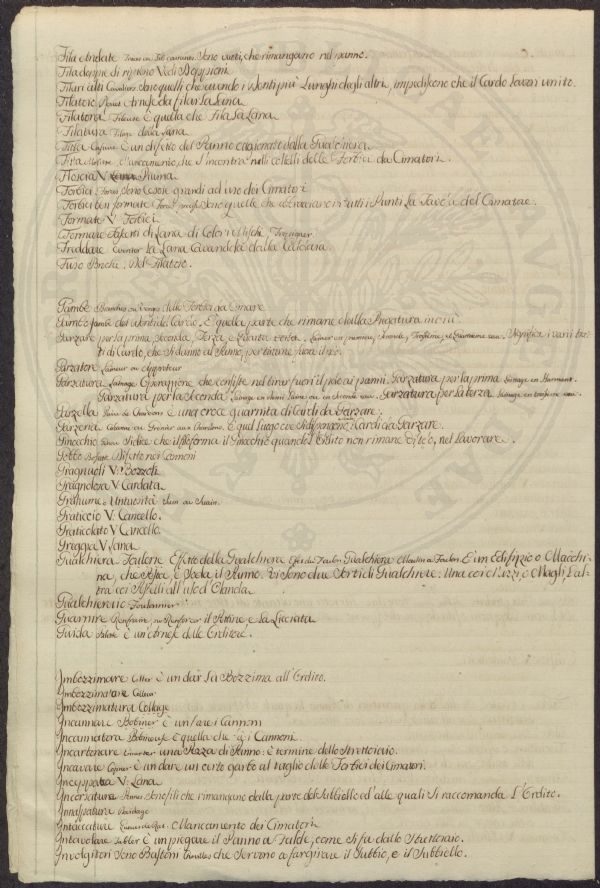 Fila andate Traces ou Fils courants. Sono vuoti, che rimangono nel panno.
Fila doppie di ripieno Vedi Doppioni
Filari alti Cavaliers sono quelli che avendo i denti più lunghi degli altri, impediscono che il Cardo lavori unito.
Filatoio Rouet arnese da filar la Lana
Filatora Fileuse è quella che Fila la Lana
Filatura Filage della Lana
è un difetto del Panno cagionato dalla Gualchiera
Mancamento, che s'incontra nelli coltelli delle Forbici da Cimatori.
Floscia V. Piuma
Forbici Forces, sono Cesoie grandi ad uso dei Cimatori
Forbici ben formate sono quelle che abbracciano in tutti i Punti la Tavola del Cimatore.
Formate V. Forbici
Formare Fascetti di Lana di Colori Mischi,
Freddare la Lana Cavandola dalla Caldaia.
Fuso Broche, Del Filatoio.
Gambe Branches ou delle Forbici da Cimare
Gambo Jambe del dente del Cardo, è quella parte che rimane dalla Piegatura in giù
Garzare per la prima, seconda, Terza, e Quarta volta, Lainer en premiere, seconde, Troisieme, et Quatrieme eau. Significa i varii trat-
ti di Cardo, che si danno al Panno, per tirarne fuora il pelo.
Garzatore Laineur ou Apprêteur
Garzatura Lainage Operazione, che consiste nel tirar fuori il pelo ai panni. Garzatura per la prima Lainage en
Garzatura per la seconda Lainage en ou en seconde eau. Garzatura per la terza Lainage en troisieme eau.
Garzella de Chardons è una croce guarnita di Cardi da Garzare.
Garzeria ou Grenier aux Chardons. è quel luogo ove si dispongono i Cardi da Garzare.
Ginocchio si dice che il filo forma il Ginocchio quando l'Ordito non rimane teso, nel lavorare.
Gobbo Bosse Difetto nei Cannoni
Gragnuoli V: Bozzoli
Gragnolosa V: Cardata
Grassume o Untuosità Suin ou Suain.
Graticcio V: Cancello.
Graticolato V Cancello.
Greggia V Lana
Gualchiera Foulerie Effetto della Gualchiera Effet du Foulon Gualchiera Moulin a Foulon. È un Edifizio o Macchi-
na, che pesta, e soda il Panno. Vi sono due sorti di Gualchiere: Una coi e Magli, l'al-
tra coi Pestelli all'uso d'Olanda.
Gualchieraio Foulonnier
Guarnire ou Renforcer il Pettine e la Licciata
Guida è un'arnese delle Orditore.
Imbozzimare Coller è un dar la Bozzima all'Ordito.
Imbozzimatore Colleur
Imbozzimatura Collage
Incannare Bobiner è un fare i Cannoni
Incannatora Bobineuse è quella che fa i Cannoni.
Incartonare Encarter una Pezza di Panno: è termine dello Strettoiaio.
Incavare è un dare un certo garbo al taglio delle Forbici dei Cimatori.
Inceppata V: Lana
Incorsatura sono fili che rimangono dalla parte del subbiello ed alle quali si raccomanda l'Ordito.
Innaspatura Devidage
Intaccature Mancamento dei Cimatori
Intavolare Tabler è un piegare il Panno a Falde, come si fa dallo Strettoiaio.
Involgitori sono Bastoni che servono a far girare il Subbio, e il Subbiello.